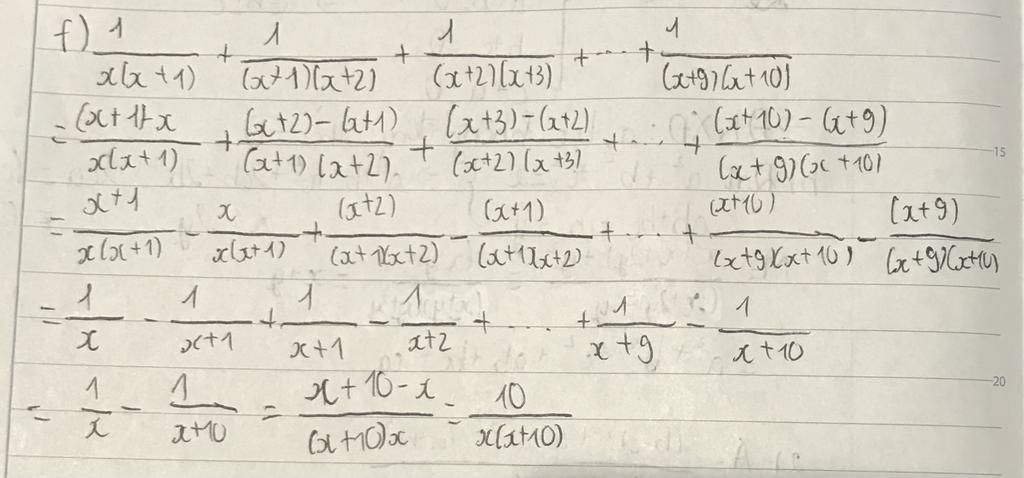 f) 1/(x(x+1)) + 1/((x+1)(x+2)) + 1/((x+2)(x+3)) + ... + 1/((x+9)(x+10))
= ((x+1)-x)/(x(x+1)) + ((x+2)-(x+1))/((x+1)(x+2)) + ((x+3)-(x+2))/((x+2)(x+3)) + ... + ((x+10)-(x+9))/((x+9)(x+10))
15
= (x+1)/(x(x+1)) - x/(x(x+1)) + (x+2)/((x+1)(x+2)) - (x+1)/((x+1)(x+2)) + ... + (x+10)/((x+9)(x+10)) - (x+9)/((x+9)(x+10))
= 1/x - 1/(x+1) + 1/(x+1) - 1/(x+2) + .... + 1/(x+9) - 1/(x+10)
20
= 1/x - 1/(x+10) = (x+10-x)/((x+10)x) = 10/(x(x+10))